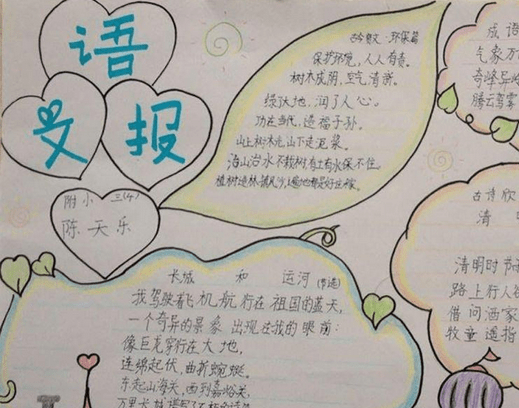 语
文报
附小 三(4)
陈天乐
古今贤文·环保篇
保护环境，人人有责。
树木成阴，空气清新。
绿沃地，润了人心。
功在当代，造福子孙。
山上树木光，山下走泥浆。
治山治水不栽树，有土有水保不住。
植树造林，挡风沙，遍地都是好庄稼。
长城 和 运河（节选）
我驾驶着飞机航行在祖国的蓝天，
一个奇异的景象出现在我的眼前：
像巨龙穿行在大地，
连绵起伏，曲折蜿蜒。
东起山海关，西到嘉峪关，
万里长城
成语
气象万
奇峰异
腾云驾雾
古诗欣
清
清明时节
路上行人
借问酒家
牧童遥指